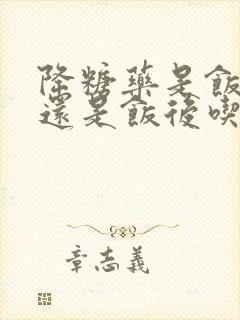 降糖藥是飯
還是飯後喫
章志義